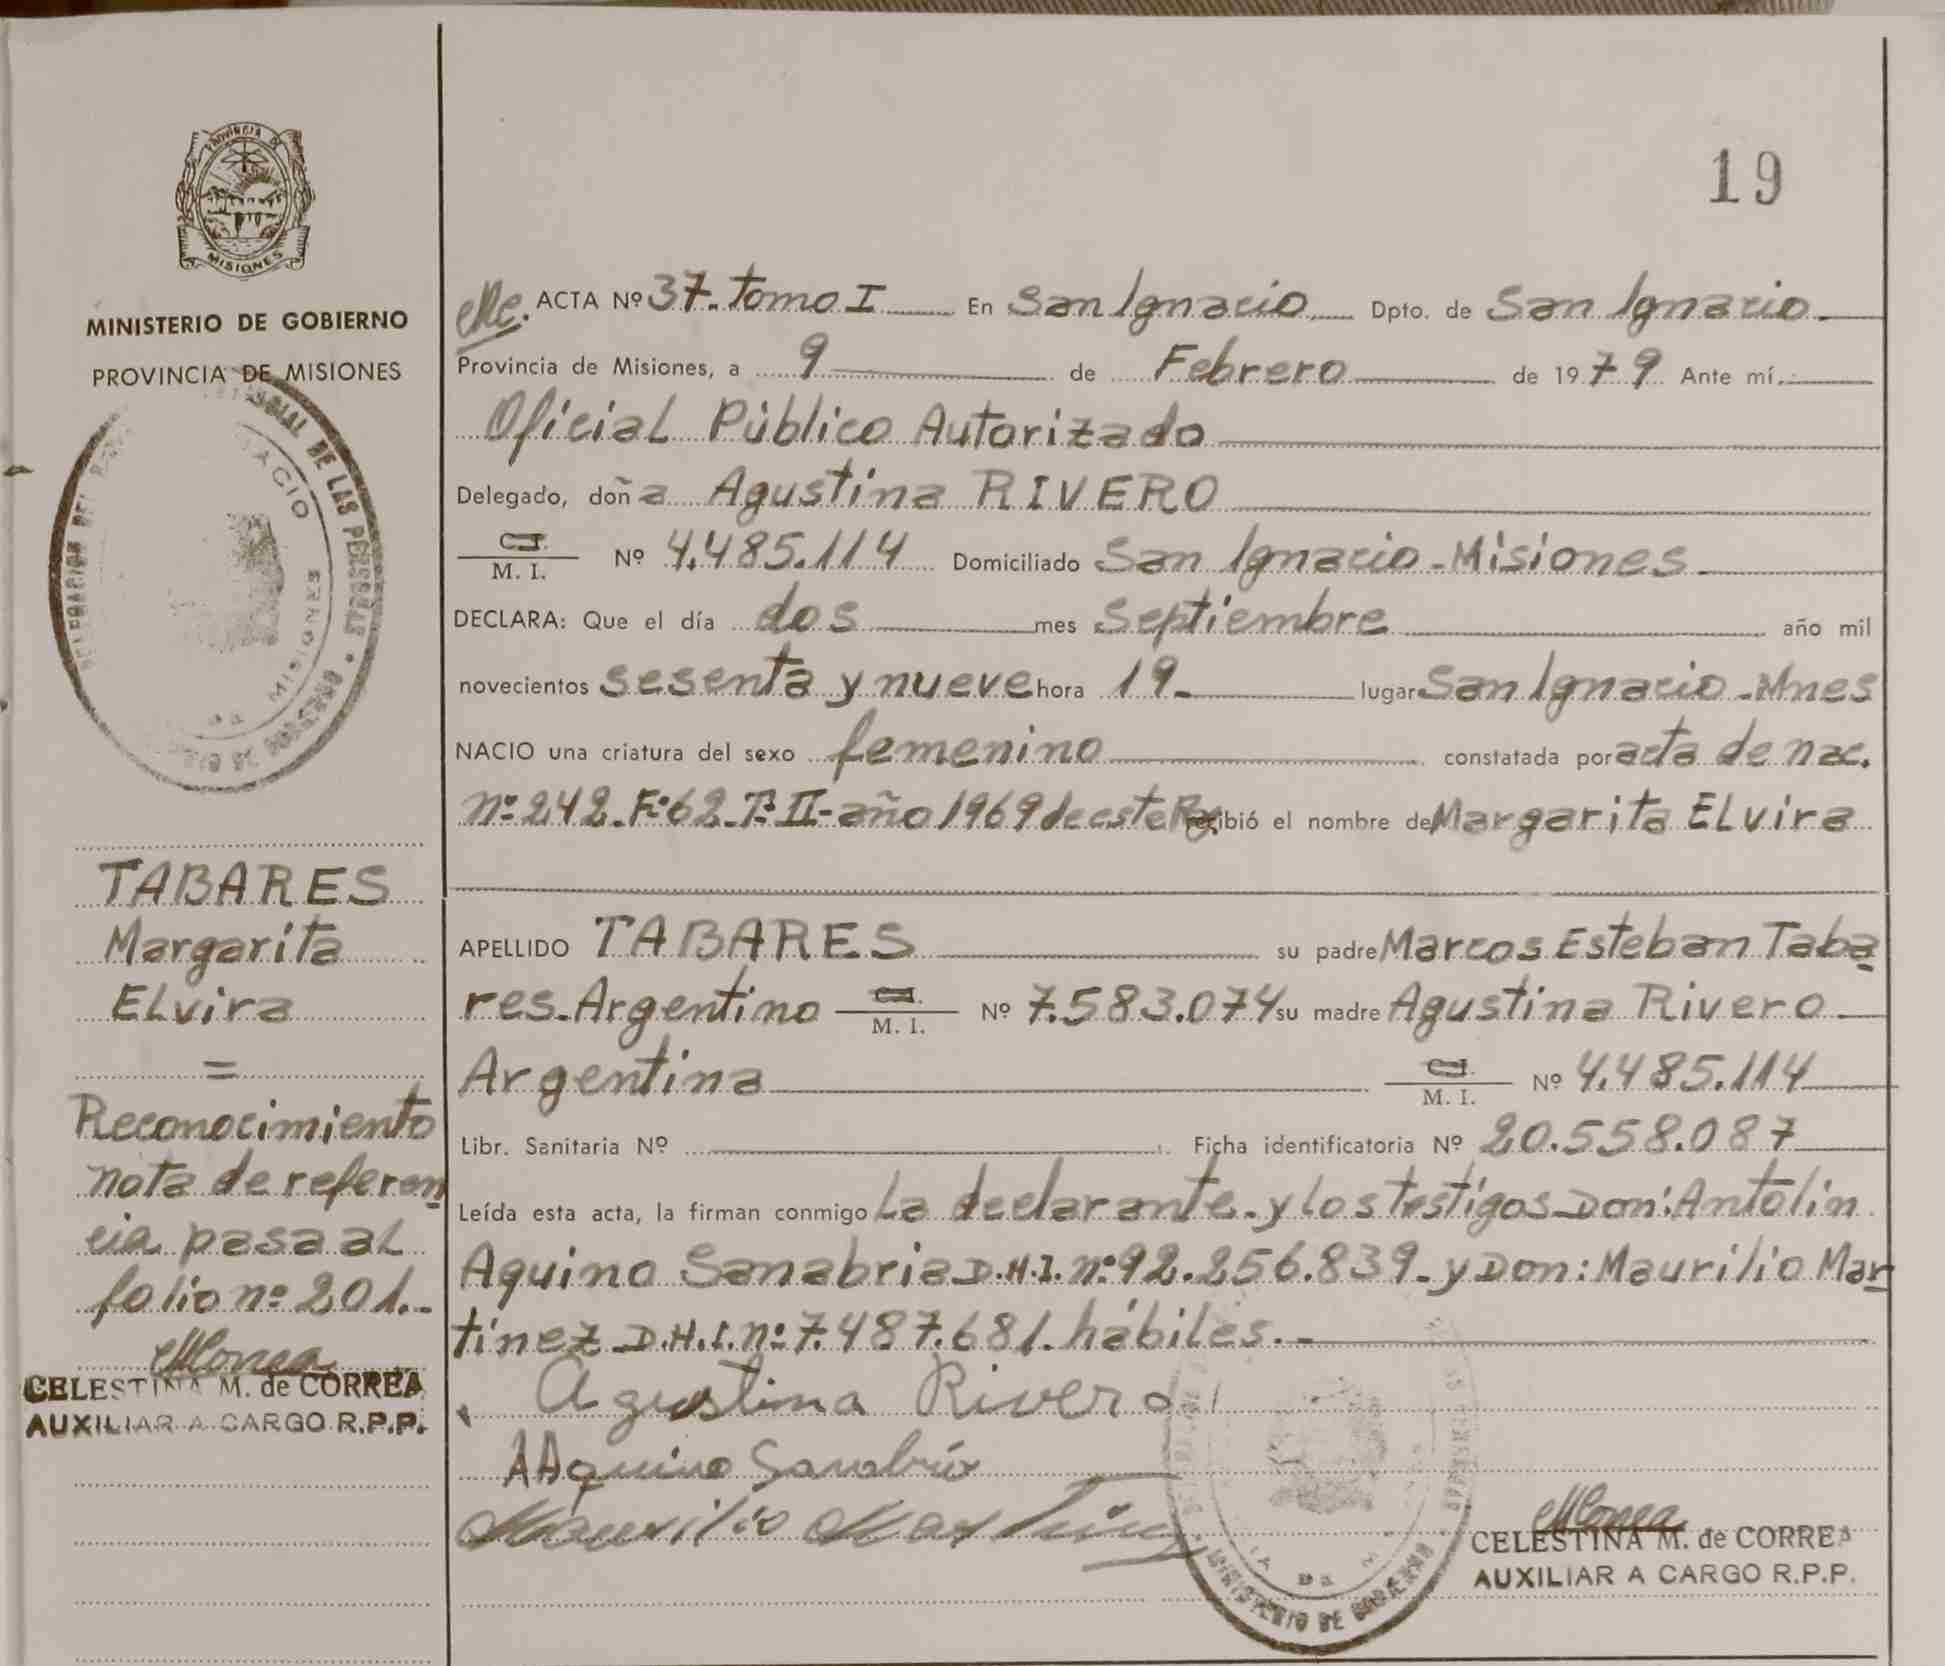 19
PROVINCIA DE
MISIONES
MINISTERIO DE GOBIERNO
PROVINCIA DE MISIONES
TABARES
Margarita
ELvira
=
Reconocimiento
nota de referen
cia pasa al
folio nº 201.-
CELESTINA M. de CORREA
AUXILIAR A CARGO R.P.P.
ACTA Nº 37. tomo I En San Ignacio Dpto. de San Ignacio
Provincia de Misiones, a 9 de Febrero de 1979 Ante mí,
Oficial Público Autorizado
Delegado, doña Agustina RIVERO
C.I.
M. I. Nº 4.485.114 Domiciliado San Ignacio - Misiones
DECLARA: Que el día dos mes Septiembre año mil
novecientos sesenta y nueve hora 19 lugar San Ignacio - Mnes
NACIO una criatura del sexo femenino constatada por acta de nac.
nº 242. Fº 62. Tº II - año 1969 de este recibió el nombre de Margarita ELvira
APELLIDO TABARES su padre Marcos Esteban Taba
res. Argentino C.I. M. I. Nº 7.583.074 su madre Agustina Rivero
Argentina C.I. M. I. Nº 4.485.114
Libr. Sanitaria Nº Ficha identificatoria Nº 20.558.087
Leída esta acta, la firman conmigo La declarante. y los testigos Don: Antolín
Aquino Sanabria D.N.I. nº 92.256.839. y Don: Maurilio Mar
tínez D.N.I. nº 7.487.681. hábiles.-
Agustina Rivero
AAquino Sanabria
Maurilio Martinez
MINISTERIO DE GOBIERNO
CELESTINA M. de CORREA
AUXILIAR A CARGO R.P.P.